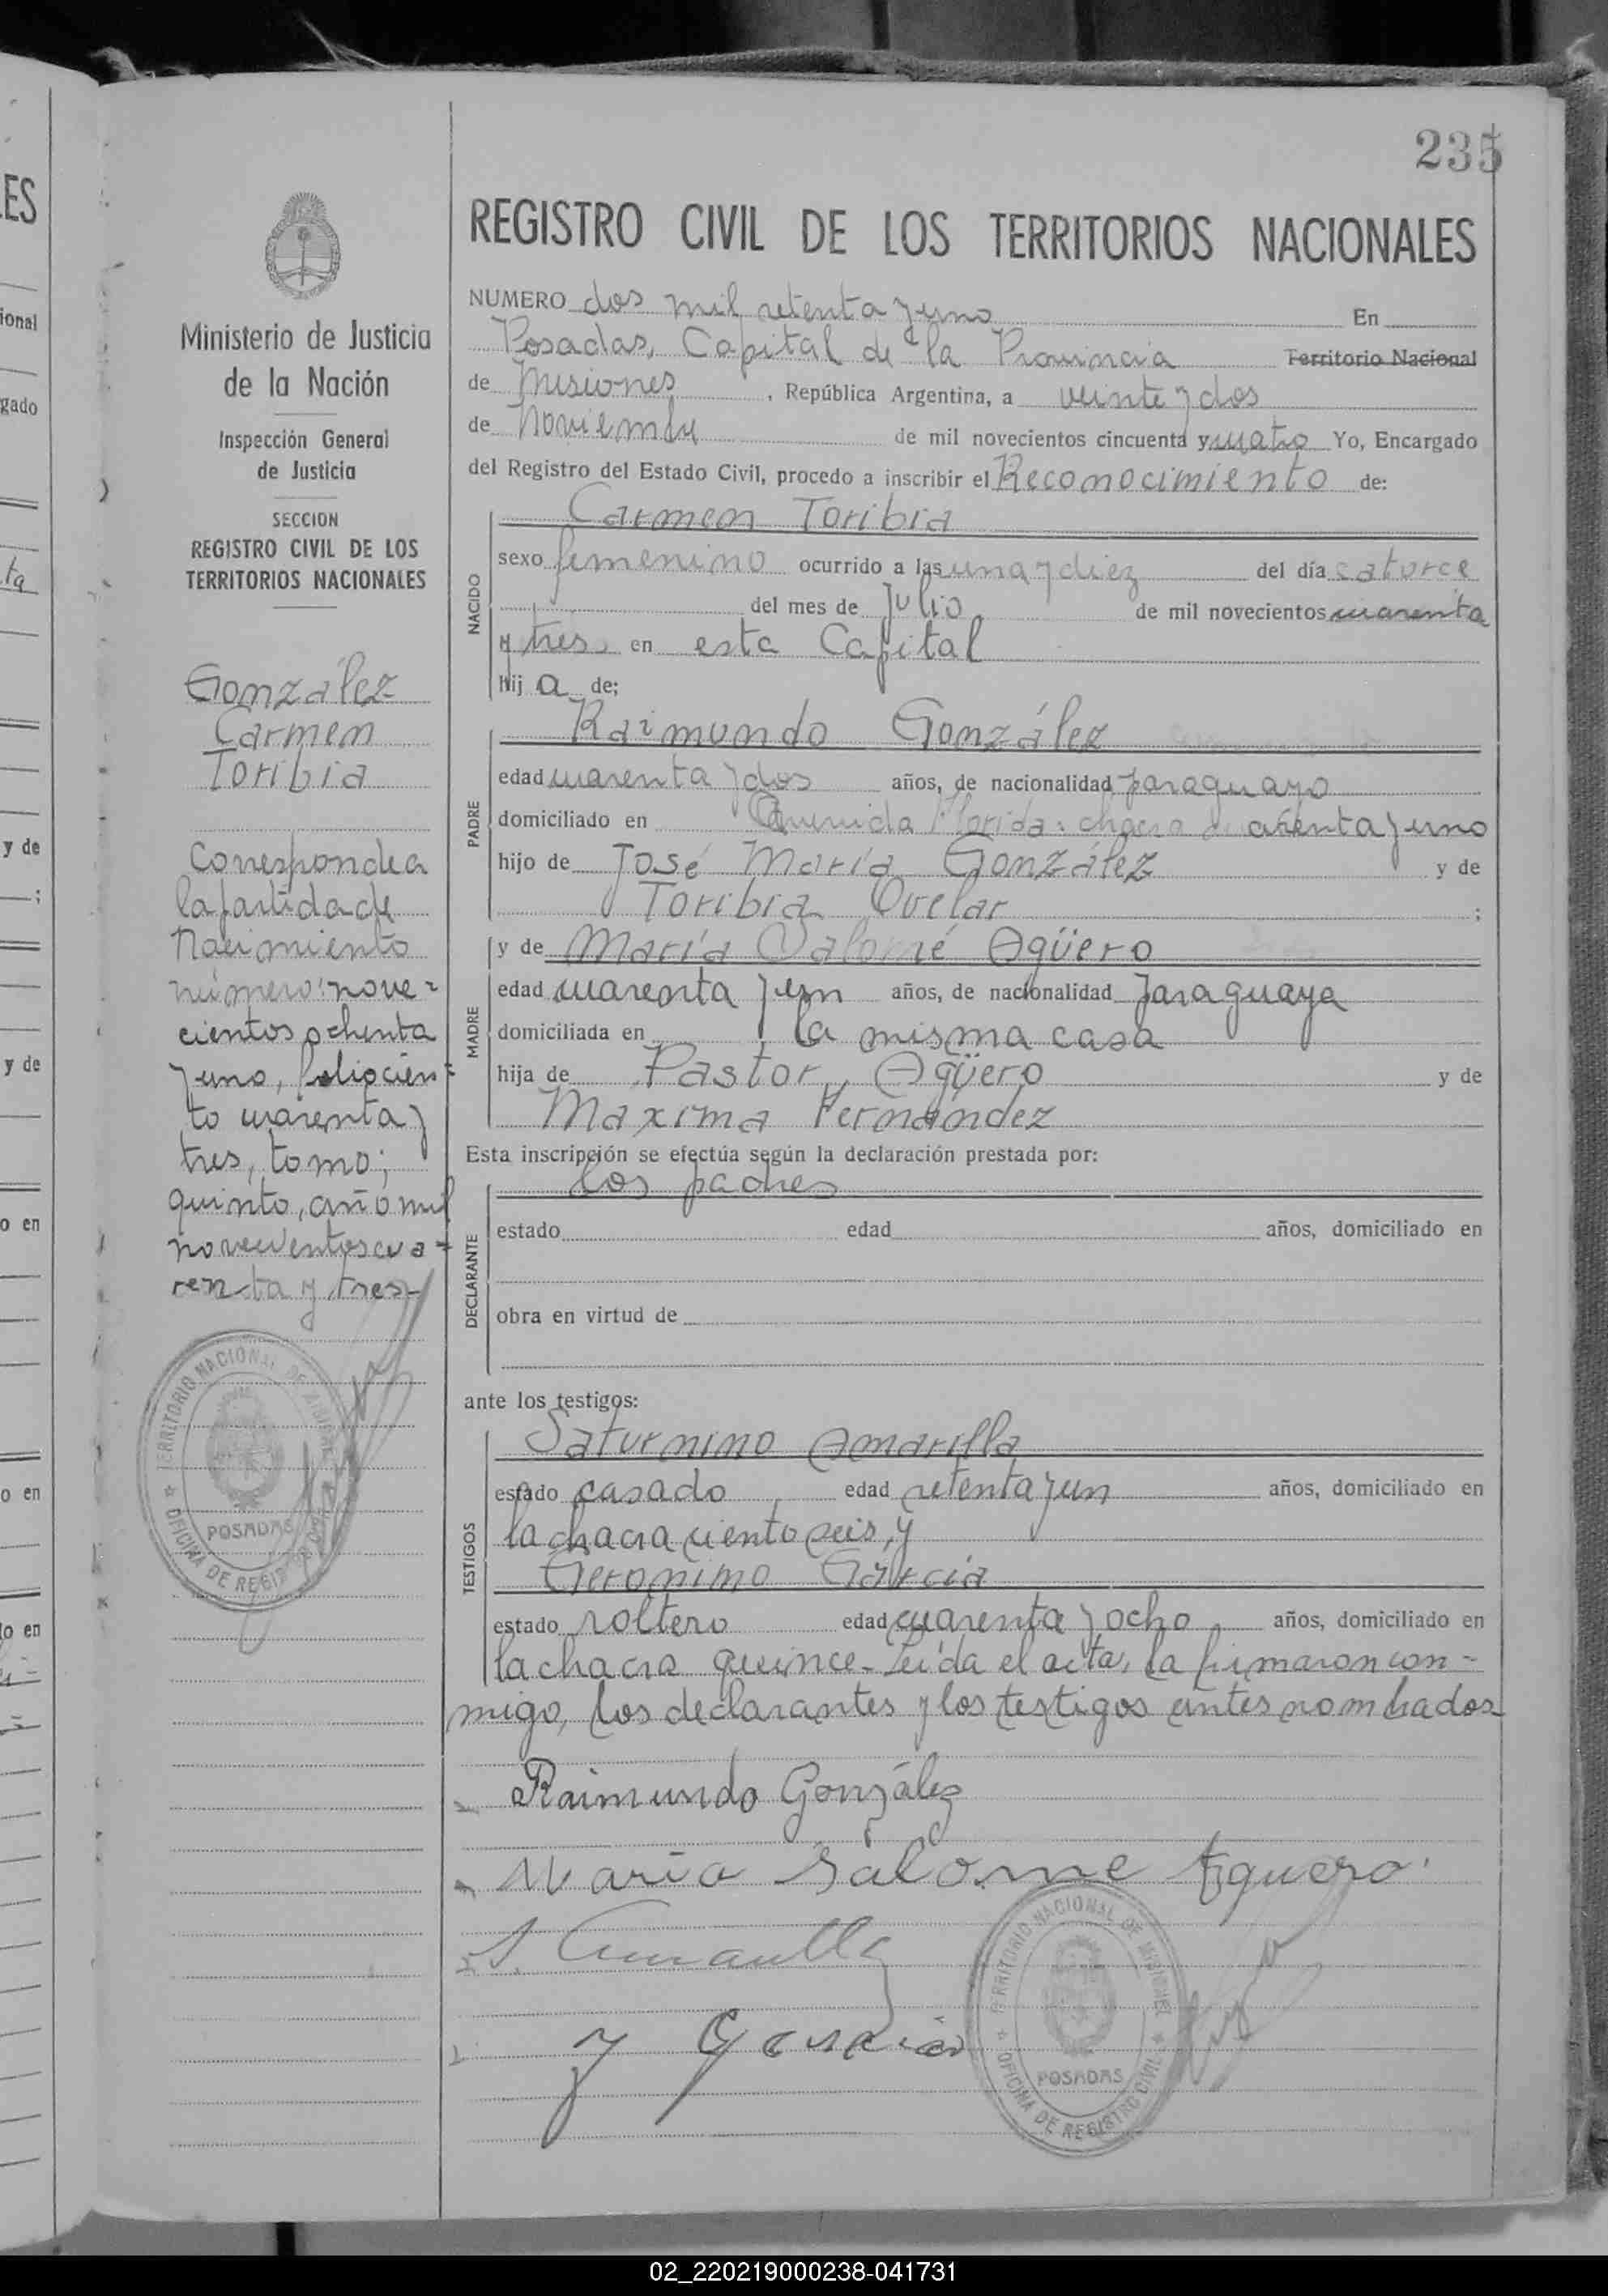 235
REGISTRO CIVIL DE LOS TERRITORIOS NACIONALES
Ministerio de Justicia
de la Nación
Inspección General
de Justicia
SECCION
REGISTRO CIVIL DE LOS
TERRITORIOS NACIONALES
González
Carmen
Toribia
Corresponde a
la partida de
Nacimiento
número: nove=
cientos ochenta
y uno, folio cien=
to cuarenta y
tres, tomo;
quinto, año mil
novecientos cua=
renta y tres-
TERRITORIO NACIONAL DE MISIONES
POSADAS
OFICINA DE REGISTRO CIVIL
NUMERO dos mil setenta y uno En
Posadas, Capital de la Provincia Territorio Nacional
de Misiones, República Argentina, a veinte y dos
de Noviembre de mil novecientos cincuenta y cuatro Yo, Encargado
del Registro del Estado Civil, procedo a inscribir el Reconocimiento de:
NACIDO
Carmen Toribia
sexo femenino ocurrido a las una y diez del día catorce
del mes de Julio de mil novecientos cuarenta
y tres en esta Capital
hij a de;
PADRE
Raimundo González
edad cuarenta y dos años, de nacionalidad paraguayo
domiciliado en Avenida Florida: chacra y uno
hijo de José María González y de
Toribia Ovelar ;
MADRE
y de María Salomé Agüero
edad cuarenta y un años, de nacionalidad paraguaya
domiciliada en la misma casa
hija de Pastor Agüero y de
Maxima Fernández
Esta inscripción se efectúa según la declaración prestada por:
DECLARANTE
los padres
estado edad años, domiciliado en
obra en virtud de
ante los testigos:
TESTIGOS
Saturnino Amarilla
estado casado edad setenta y un años, domiciliado en
la chacra ciento seis, y
Geronimo García
estado soltero edad cuarenta y ocho años, domiciliado en
la chacra quince- Leída el acta, la firmaron con-
migo, los declarantes y los testigos antes nombrados
Raimundo González
Maria Salome Aguero
S. Amarilla
J Garcia
TERRITORIO NACIONAL DE MISIONES
POSADAS
OFICINA DE REGISTRO CIVIL
ES
ional
gado
ta
y de
;
y de
o en
o en
o en
02_220219000238-041731